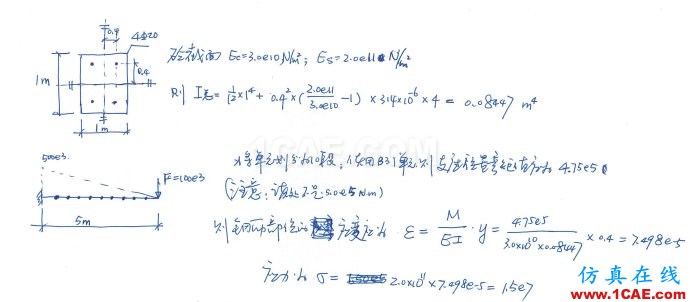 0.4
4Φ20
0.4
1m
1m
砼截面 Ec=3.0e10N/m²; Es=2.0e11 N/m²
则 I总= 1/12×1⁴ + 0.4²×(2.0e11/3.0e10 -1) × 314×10⁻⁶ × 4 = 0.0847 m⁴
500e3.
F=100e3
5m
将单元划分为10段,使用B31单元,则支座位置弯矩值为 4.75e5
(注意:该处不是5.0e5 N·m)
则钢筋部位的应变应为 ε = M/EI · y = 4.75e5/3.0×10¹⁰×0.0847 × 0.4 = 7.498e-5
应力为 σ = 2.0×10¹¹×7.498e-5 = 1.5e7
1CAE.COM
仿真在线
www.1CAE.com